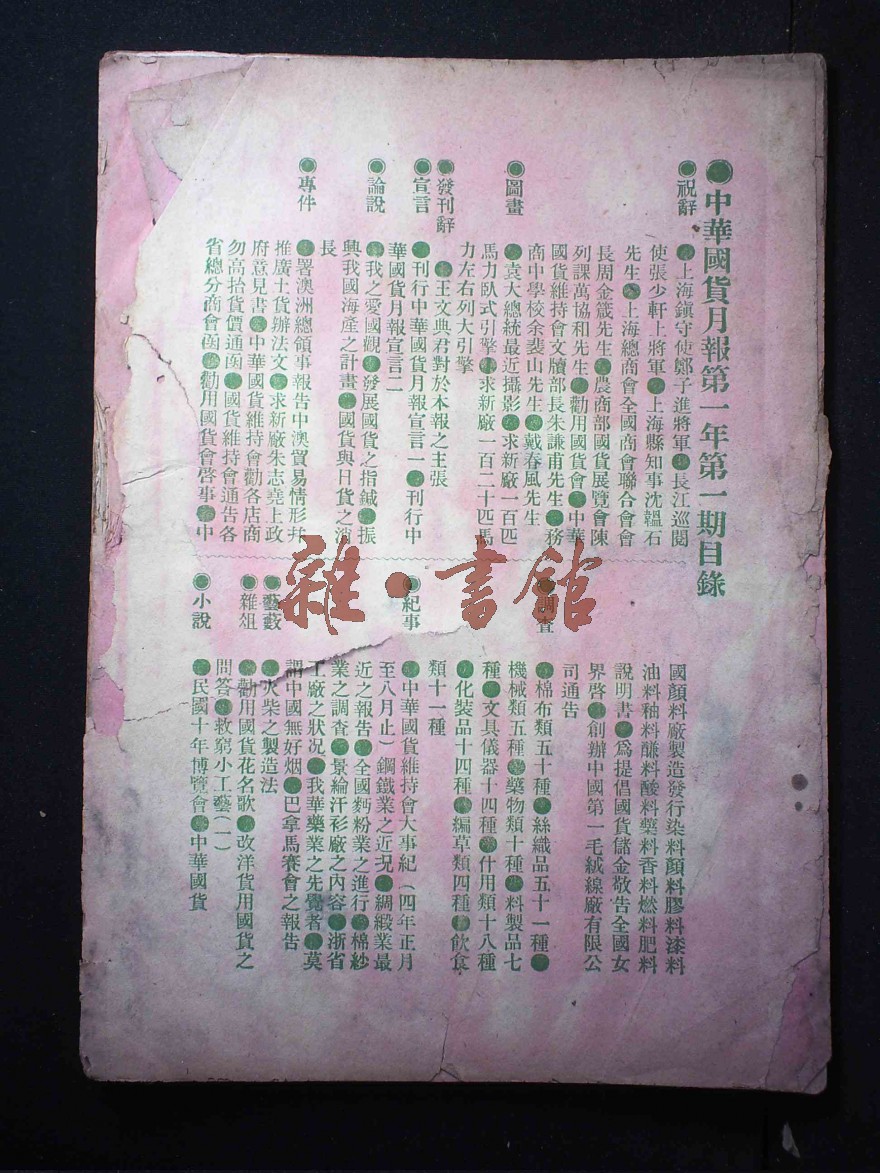 ●中華國貨月報第一年第一期目錄
●祝辭
●上海鎮守使鄭子進將軍●長江巡閱
使張少軒上將軍●上海縣知事沈韞石
先生●上海總商會全國商會聯合會會
長周金箴先生●農商部國貨展覽會陳
列課萬協和先生●勸用國貨會●中華
國貨維持會文牘部長朱謙甫先生●務
商中學校余裴山先生●戴春風先生
●圖畫
●袁大總統最近攝影●求新廠一百匹
馬力臥式引擎●求新廠一百二十匹馬
力左右列大引擎
●發刊辭
●王文典君對於本報之主張
●宣言
●刊行中華國貨月報宣言一●刊行中
華國貨月報宣言二
●論說
●我之愛國觀●發展國貨之指鍼●振
興我國海產之計畫●國貨與日貨之消
長
●專件
●署澳洲總領事報告中澳貿易情形并
推廣土貨辦法文●求新廠朱志堯上政
府意見書●中華國貨維持會勸各店商
勿高抬貨價通函●國貨維持會通告各
省總分商會函●勸用國貨會啓事●中
國顏料廠製造發行染料顏料膠料漆料
油料釉料醶料酸料藥料香料燃料肥料
說明書●爲提倡國貨儲金敬告全國女
界啓●創辦中國第一毛絨線廠有限公
司通告
●調查
●棉布類五十種●絲織品五十一種●
機械類五種●藥物類十種●料製品七
種●文具儀器十四種●什用類十八種
●化裝品十四種●編草類四種●飲食
類十一種
●紀事
●中華國貨維持會大事紀(四年正月
至八月止)鋼鐵業之近況●綢緞業最
近之報告●全國麪粉業之進行●棉紗
業之調查●景綸汗衫廠之內容●浙省
工廠之狀況●我華藥業之先覺者●莫
謂中國無好烟●巴拿馬賽會之報告
●藝藪
●火柴之製造法
●雜俎
●勸用國貨花名歌●改洋貨用國貨之
問答●救窮小工藝(一)
●小說
●民國十年博覽會●中華國貨
雜·書館